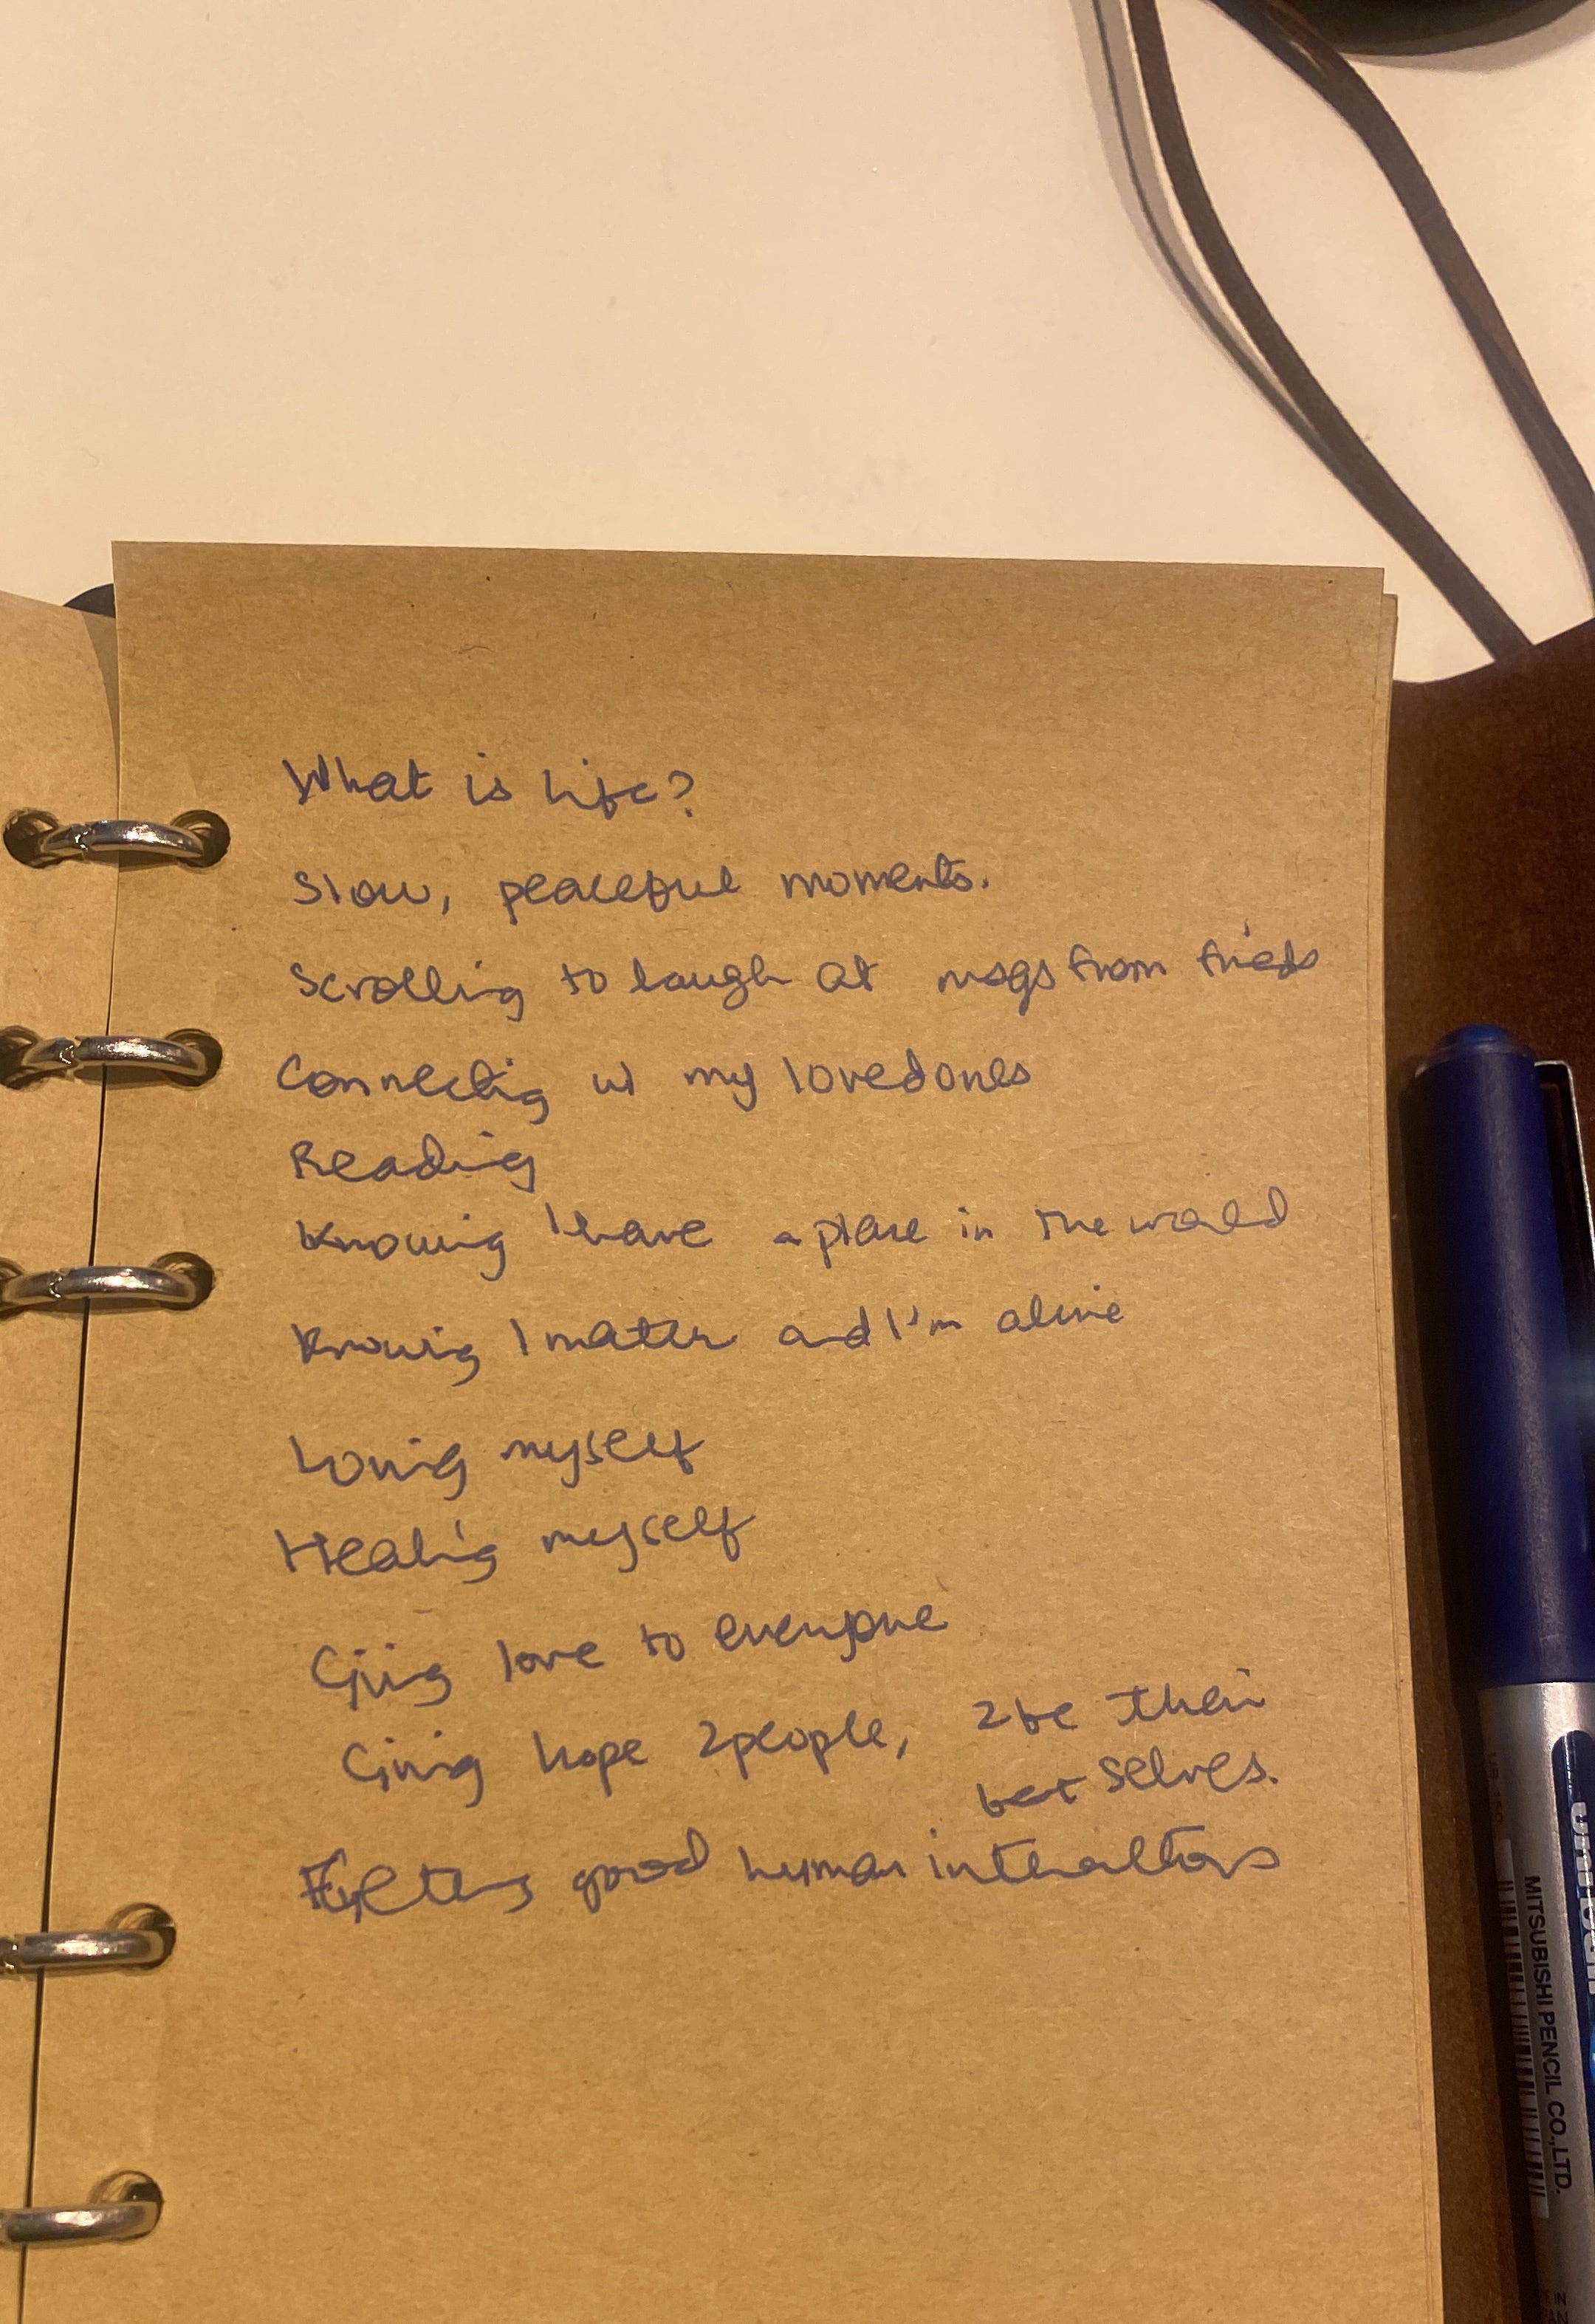 What is life?
Slow, peaceful moments.
Scrolling to laugh at msgs from frieds
Connectig w/ my loved ones
Reading
Knowing I have a place in the world
Knowig I matter and I'm alive
Lovig myself
Healig myself
Givig love to everyone
Givig hope 2 people, 2 be their
best selves.
good human interactions
MITSUBISHI PENCIL CO., LTD.